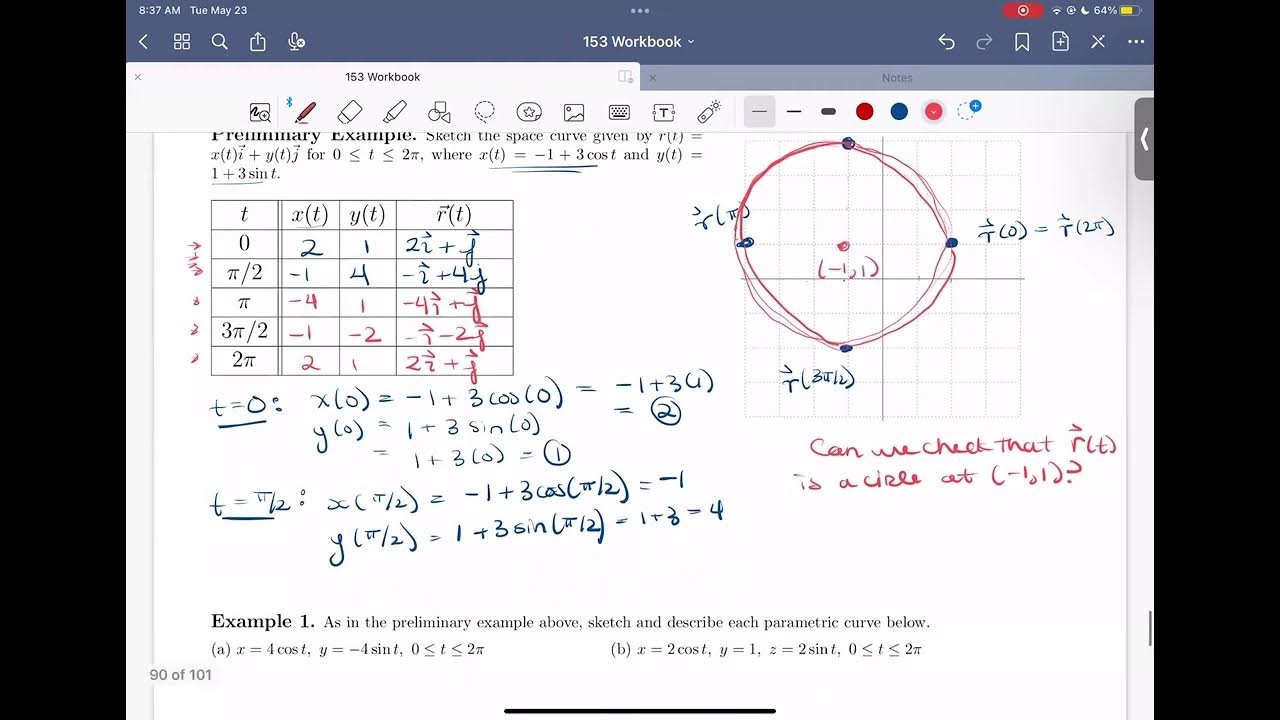 8:37 AM Tue May 23
64%
153 Workbook
153 Workbook
Notes
Preliminary Example. Sketch the space curve given by r⃗(t) =
x(t)i⃗ + y(t)j⃗ for 0 ≤ t ≤ 2π, where x(t) = −1 + 3 cos t and y(t) =
1 + 3 sin t.
t x(t) y(t) r⃗(t)
0 2 1 2i⃗ + j⃗
π/2 -1 4 -i⃗ + 4j⃗
π -4 1 -4i⃗ + j⃗
3π/2 -1 -2 -i⃗ - 2j⃗
2π 2 1 2i⃗ + j⃗
r⃗(π)
r⃗(0) = r⃗(2π)
(-1,1)
r⃗(3π/2)
t=0: x(0) = -1 + 3cos(0) = -1+3(1)
= 2
y(0) = 1 + 3 sin(0)
= 1 + 3(0) = 1
t = π/2: x(π/2) = -1 + 3cos(π/2) = -1
y(π/2) = 1 + 3 sin(π/2) = 1+3 = 4
Can we check that r⃗(t)
is a circle at (-1,1)?
Example 1. As in the preliminary example above, sketch and describe each parametric curve below.
(a) x = 4 cos t, y = −4 sin t, 0 ≤ t ≤ 2π
(b) x = 2 cos t, y = 1, z = 2 sin t, 0 ≤ t ≤ 2π
90 of 101